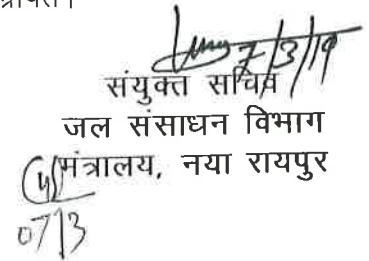 7/3/19
संयुक्त सचिव
जल संसाधन विभाग
मंत्रालय, नया रायपुर
07/3